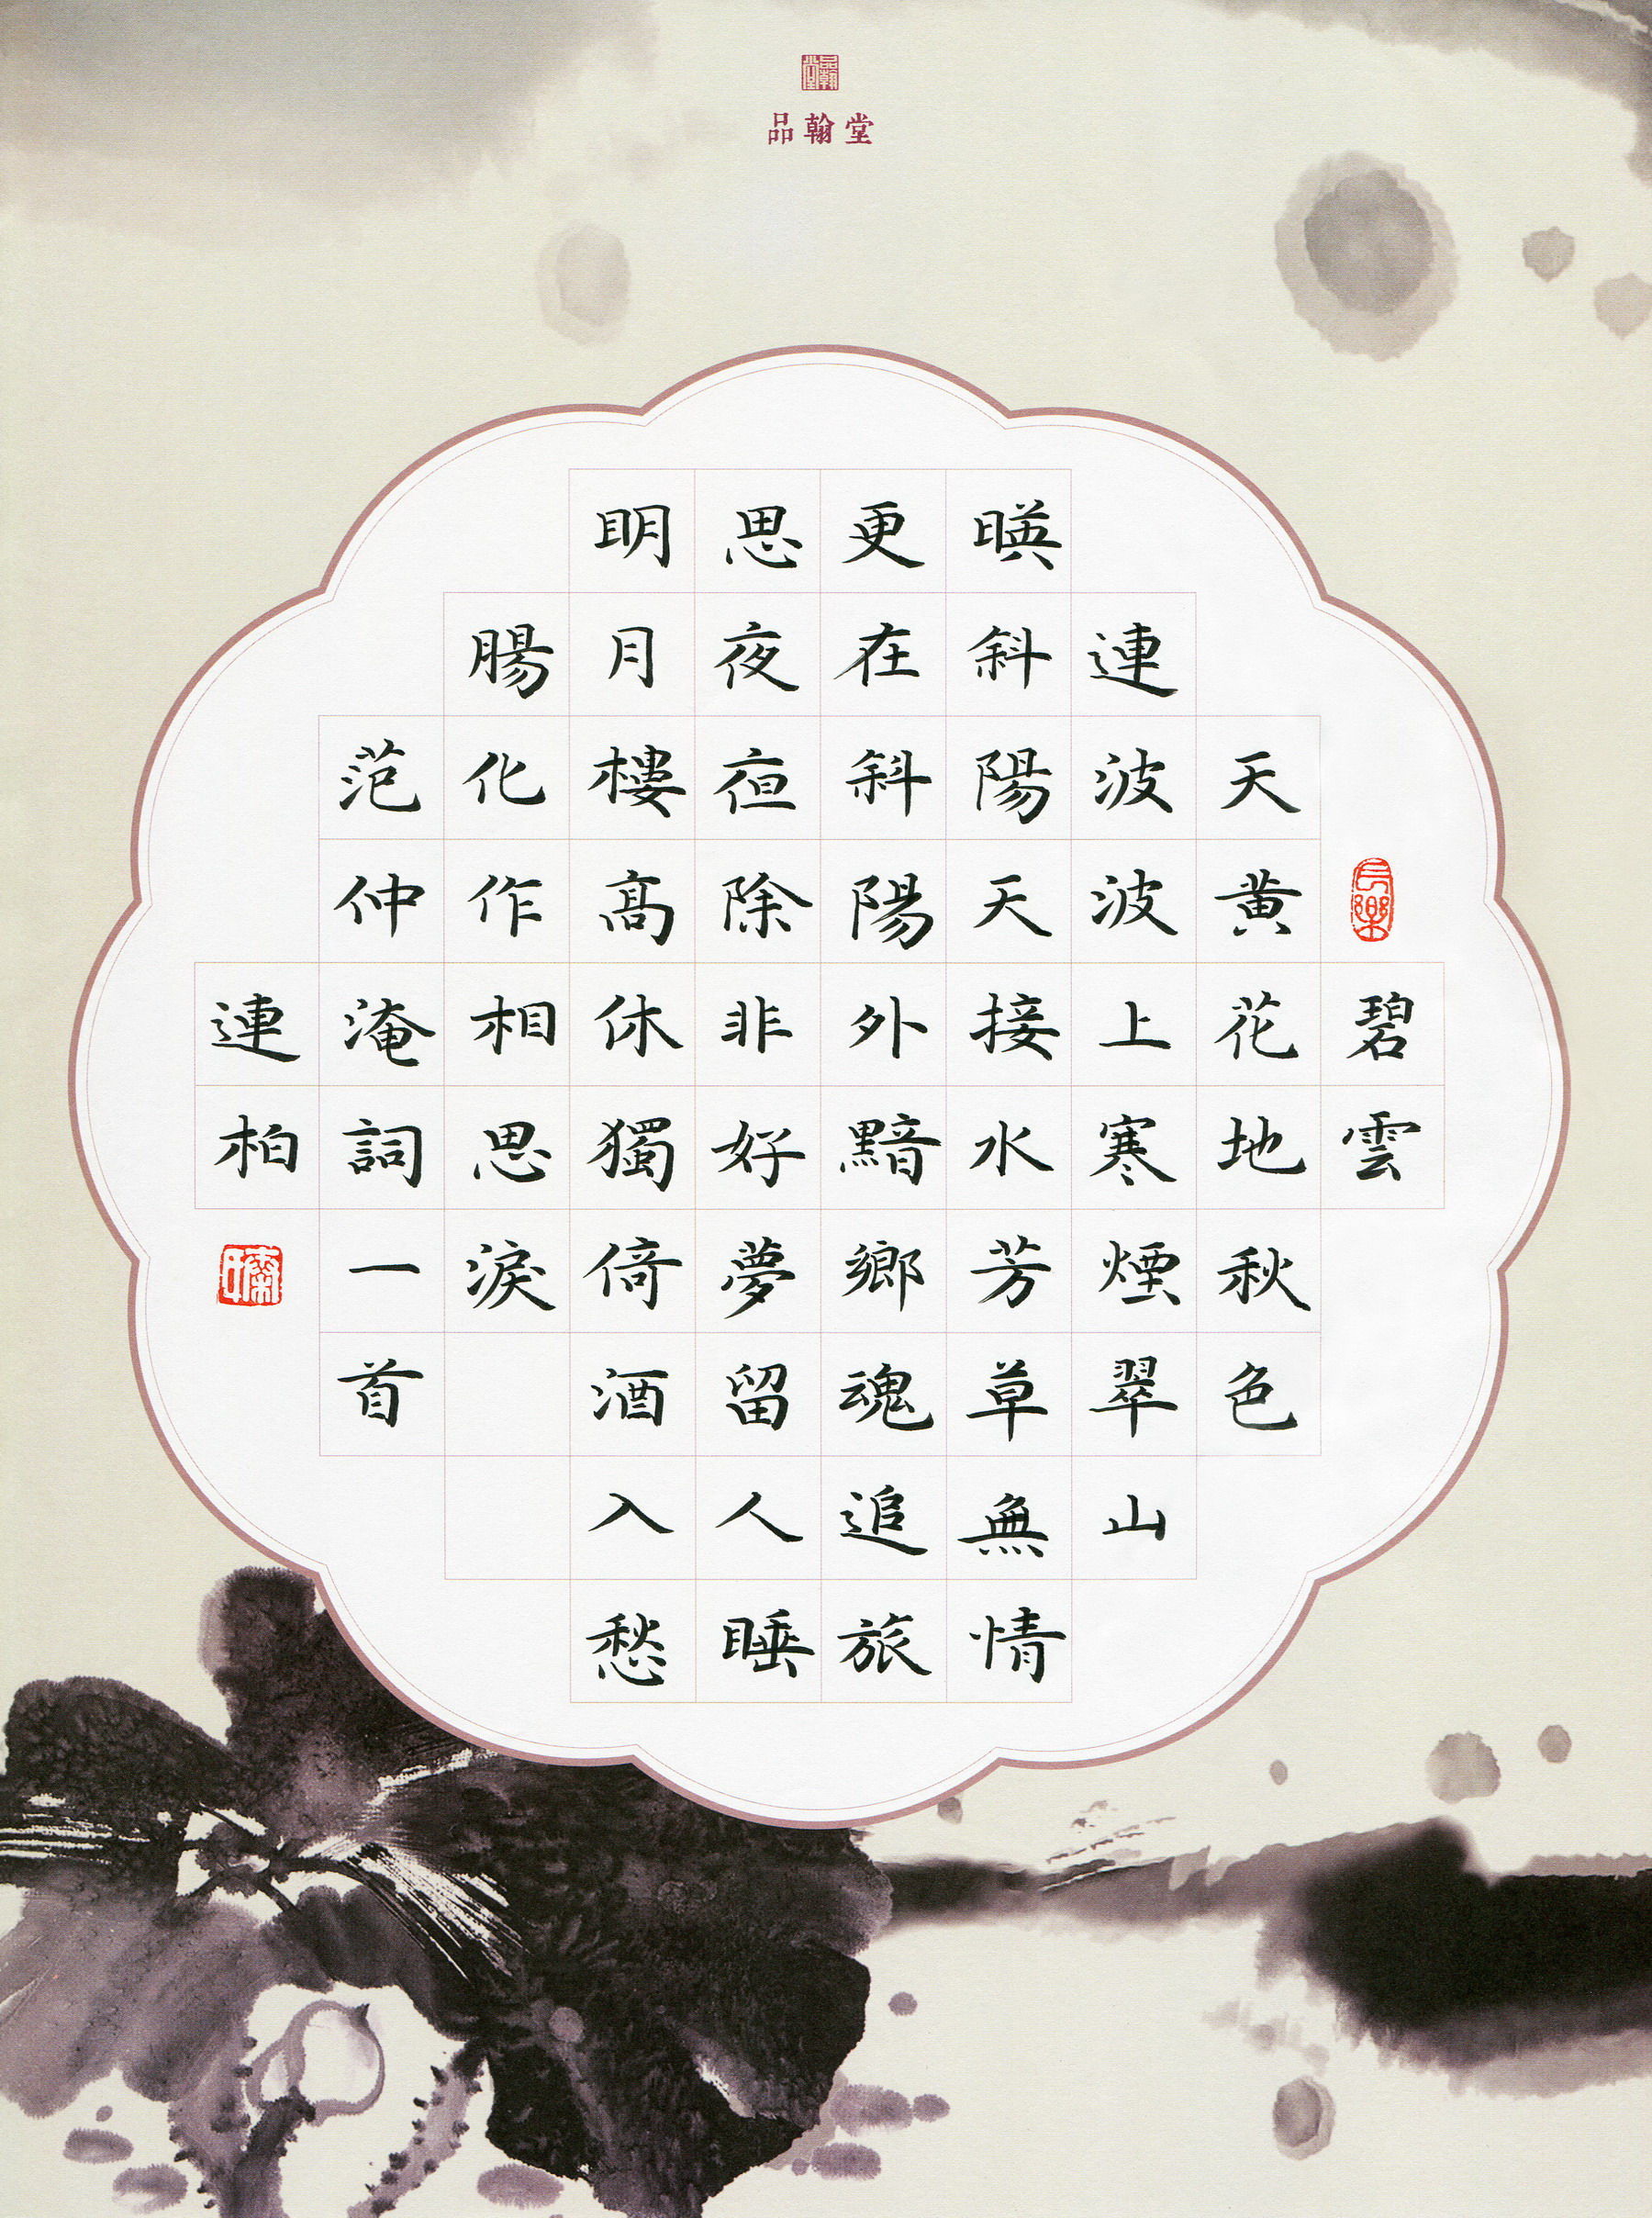 品翰堂
品翰堂
長樂
碧雲
天黄花地秋色
連波波上寒煙翠山
暎斜陽天接水芳草無情
更在斜陽外黯鄉魂追旅
思夜亱除非好夢留人睡
明月樓髙休獨倚酒入愁
腸化作相思淚
范仲淹詞一首
連柏